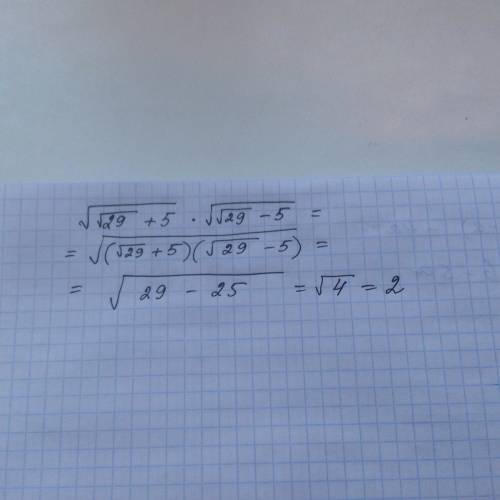 √(√29 + 5) · √(√29 − 5) =
= √((√29 + 5)(√29 − 5)) =
= √(29 − 25) = √4 = 2